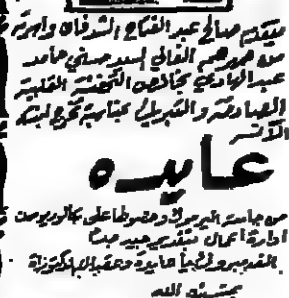 يتقدم صالح عبد الفتاح الشوفان واسرته
من صهرهم الغالي السيد حسني حامد
عبد الهادي بخالص التهنئة القلبية
الصادقة والتبريك بمناسبة تخرج ابنته
الآنسة
عايده
من جامعة اليرموك وحصولها على بكالوريوس
ادارة اعمال بتقدير جيد جدا
الف مبروك يا عايدة وعقبال الدكتوراة
بمشيئة الله